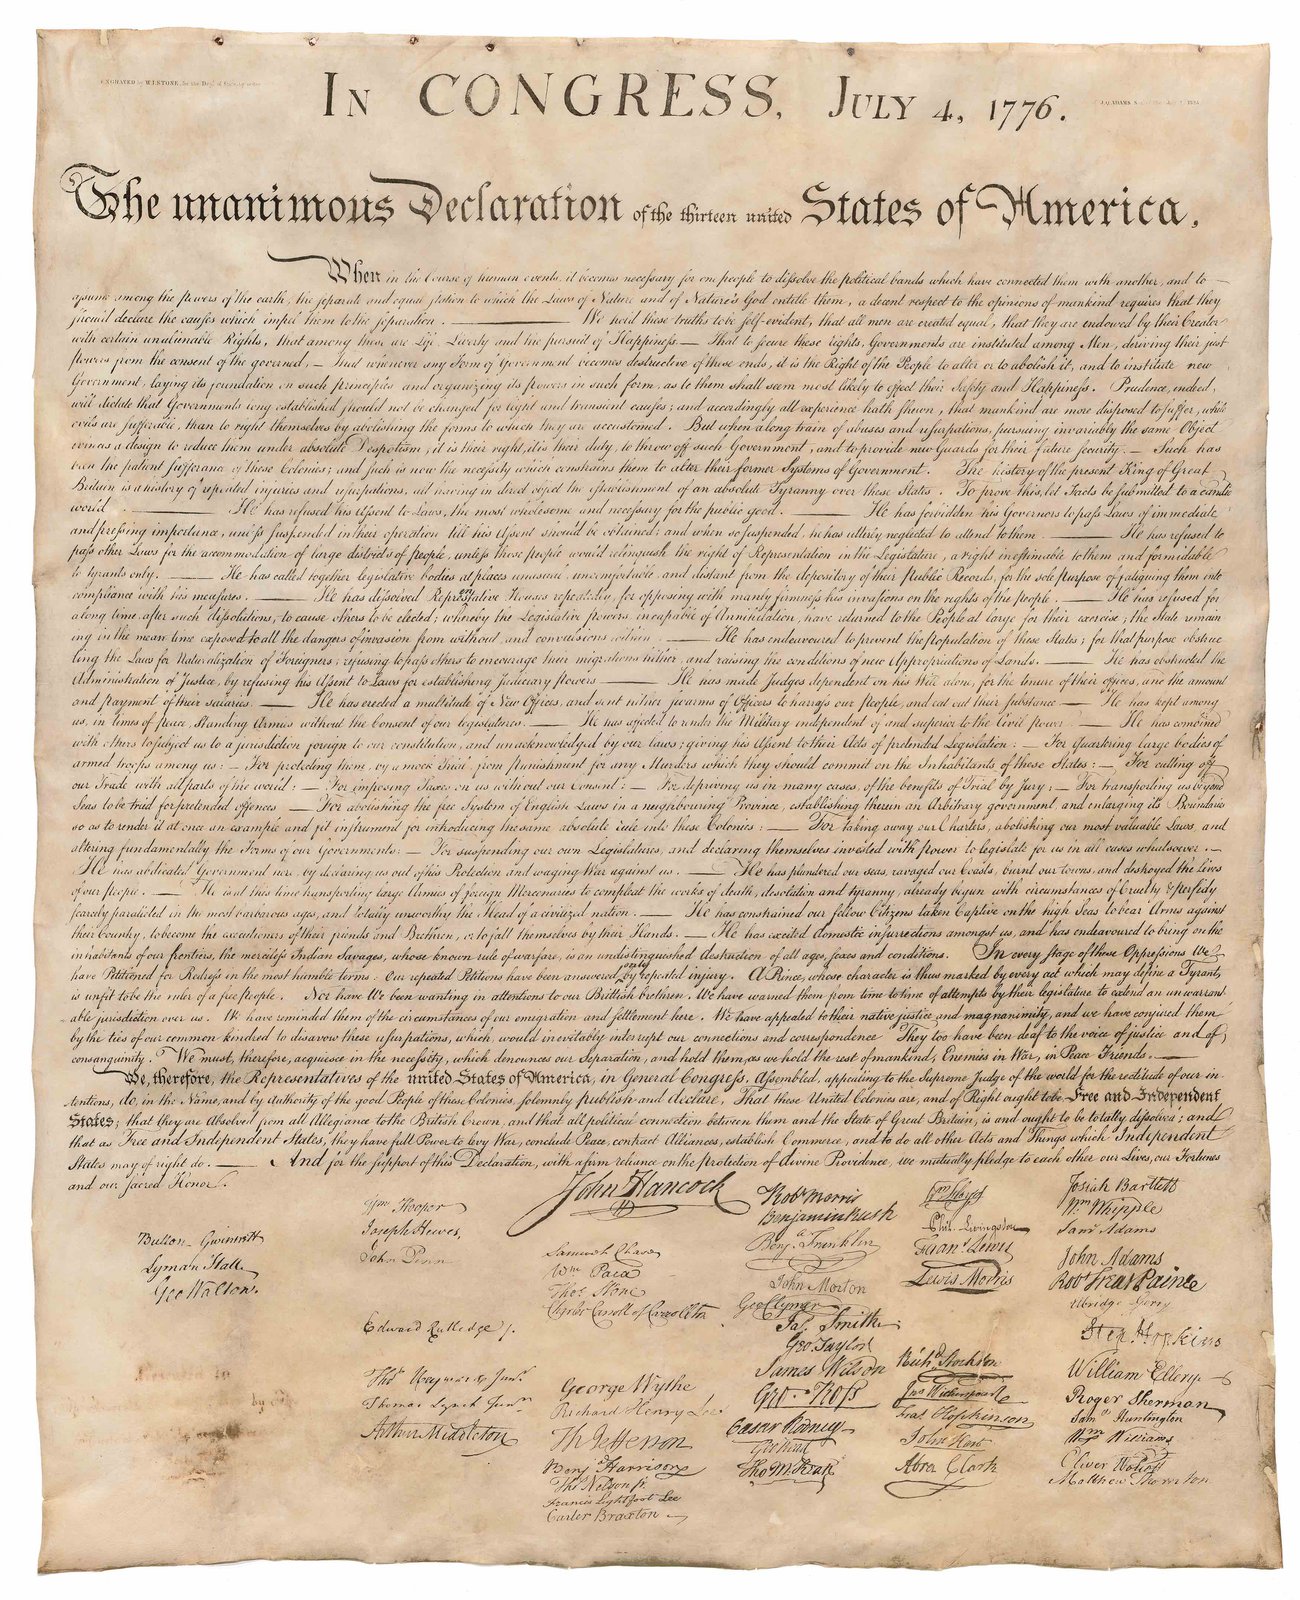 ENGRAVED by W.I.STONE, for the Dept. of State, by order
J.Q.ADAMS Sec.
In CONGRESS, July 4, 1776.
The unanimous Declaration of the thirteen united States of America,
When in the Course of human events, it becomes necessary for one people to dissolve the political bands which have connected them with another, and to
assume among the powers of the earth, the separate and equal station to which the Laws of Nature and of Nature's God entitle them, a decent respect to the opinions of mankind requires that they
should declare the causes which impel them to the separation. — We hold these truths to be self-evident, that all men are created equal, that they are endowed by their Creator
with certain unalienable Rights, that among these are Life, Liberty and the pursuit of Happiness.— That to secure these rights, Governments are instituted among Men, deriving their just
powers from the consent of the governed, — That whenever any Form of Government becomes destructive of these ends, it is the Right of the People to alter or to abolish it, and to institute new
Government, laying its foundation on such principles and organizing its powers in such form, as to them shall seem most likely to effect their Safety and Happiness. Prudence, indeed,
will dictate that Governments long established should not be changed for light and transient causes; and accordingly all experience hath shewn, that mankind are more disposed to suffer, while
evils are sufferable, than to right themselves by abolishing the forms to which they are accustomed. But when a long train of abuses and usurpations, pursuing invariably the same Object
evinces a design to reduce them under absolute Despotism, it is their right, it is their duty, to throw off such Government, and to provide new Guards for their future security.— Such has
been the patient sufferance of these Colonies; and such is now the necessity which constrains them to alter their former Systems of Government. The history of the present King of Great
Britain is a history of repeated injuries and usurpations, all having in direct object the establishment of an absolute Tyranny over these States. To prove this, let Facts be submitted to a candid
world. — He has refused his Assent to Laws, the most wholesome and necessary for the public good. — He has forbidden his Governors to pass Laws of immediate
and pressing importance, unless suspended in their operation till his Assent should be obtained; and when so suspended, he has utterly neglected to attend to them. — He has refused to
pass other Laws for the accommodation of large districts of people, unless those people would relinquish the right of Representation in the Legislature, a right inestimable to them and formidable
to tyrants only. — He has called together legislative bodies at places unusual, uncomfortable, and distant from the depository of their Public Records, for the sole purpose of fatiguing them into
compliance with his measures. — He has dissolved Representative Houses repeatedly, for opposing with manly firmness his invasions on the rights of the people. — He has refused for
a long time, after such dissolutions, to cause others to be elected; whereby the Legislative powers, incapable of Annihilation, have returned to the People at large for their exercise; the State remain
ing in the mean time exposed to all the dangers of invasion from without, and convulsions within. — He has endeavoured to prevent the population of these States; for that purpose obstruc
ting the Laws for Naturalization of Foreigners; refusing to pass others to encourage their migrations hither, and raising the conditions of new Appropriations of Lands. — He has obstructed the
Administration of Justice, by refusing his Assent to Laws for establishing Judiciary powers — He has made Judges dependent on his Will alone, for the tenure of their offices, and the amount
and payment of their salaries. — He has erected a multitude of New Offices, and sent hither swarms of Officers to harrass our people, and eat out their substance — He has kept among
us, in times of peace, Standing Armies without the Consent of our legislatures. — He has affected to render the Military independent of and superior to the Civil power. — He has combined
with others to subject us to a jurisdiction foreign to our constitution, and unacknowledged by our laws; giving his Assent to their Acts of pretended Legislation: — For Quartering large bodies of
armed troops among us: — For protecting them, by a mock Trial, from punishment for any Murders which they should commit on the Inhabitants of these States: — For cutting off
our Trade with all parts of the world: — For imposing Taxes on us without our Consent: — For depriving us in many cases, of the benefits of Trial by Jury: — For transporting us beyond
Seas to be tried for pretended offences — For abolishing the free System of English Laws in a neighbouring Province, establishing therein an Arbitrary government, and enlarging its Boundaries
so as to render it at once an example and fit instrument for introducing the same absolute rule into these Colonies: — For taking away our Charters, abolishing our most valuable Laws, and
altering fundamentally the Forms of our Governments: — For suspending our own Legislatures, and declaring themselves invested with power to legislate for us in all cases whatsoever. —
He has abdicated Government here, by declaring us out of his Protection and waging War against us. — He has plundered our seas, ravaged our Coasts, burnt our towns, and destroyed the lives
of our people. — He is at this time transporting large Armies of foreign Mercenaries to compleat the works of death, desolation and tyranny, already begun with circumstances of Cruelty & perfidy
scarcely paralleled in the most barbarous ages, and totally unworthy the Head of a civilized nation. — He has constrained our fellow Citizens taken Captive on the high Seas to bear Arms against
their Country, to become the executioners of their friends and Brethren, or to fall themselves by their Hands. — He has excited domestic insurrections amongst us, and has endeavoured to bring on the
inhabitants of our frontiers, the merciless Indian Savages, whose known rule of warfare, is an undistinguished destruction of all ages, sexes and conditions. In every stage of these Oppressions We
have Petitioned for Redress in the most humble terms: Our repeated Petitions have been answered only by repeated injury. A Prince, whose character is thus marked by every act which may define a Tyrant,
is unfit to be the ruler of a free people. Nor have We been wanting in attentions to our Brittish brethren. We have warned them from time to time of attempts by their legislature to extend an unwarrant
able jurisdiction over us. We have reminded them of the circumstances of our emigration and settlement here. We have appealed to their native justice and magnanimity, and we have conjured them
by the ties of our common kindred to disavow these usurpations, which, would inevitably interrupt our connections and correspondence They too have been deaf to the voice of justice and of
consanguinity. We must, therefore, acquiesce in the necessity, which denounces our Separation, and hold them, as we hold the rest of mankind, Enemies in War, in Peace Friends. —
We, therefore, the Representatives of the united States of America, in General Congress, Assembled, appealing to the Supreme Judge of the world for the rectitude of our in
tentions, do, in the Name, and by Authority of the good People of these Colonies, solemnly publish and declare, That these United Colonies are, and of Right ought to be Free and Independent
States; that they are Absolved from all Allegiance to the British Crown, and that all political connection between them and the State of Great Britain, is and ought to be totally dissolved; and
that as Free and Independent States, they have full Power to levy War, conclude Peace, contract Alliances, establish Commerce, and to do all other Acts and Things which Independent
States may of right do. — And for the support of this Declaration, with a firm reliance on the protection of divine Providence, we mutually pledge to each other our Lives, our Fortunes
and our sacred Honor.
Button Gwinnett
Lyman Hall
Geo Walton.
Wm Hooper
Joseph Hewes,
John Penn
Edward Rutledge /.
Thos Heyward Junr.
Thomas Lynch Junr.
Arthur Middleton
John Hancock
Samuel Chase
Wm Paca
Thos Stone
Charles Carroll of Carrollton
George Wythe
Richard Henry Lee
Th Jefferson
Benj Harrison
Thos Nelson jr.
Francis Lightfoot Lee
Carter Braxton
Robt Morris
Benjamin Rush
Benj. Franklin
John Morton
Geo Clymer
Jas. Smith
Geo. Taylor
James Wilson
Geo. Ross
Caesar Rodney
Geo Read
Tho M:Kean
Wm Floyd
Phil. Livingston
Frans. Lewis
Lewis Morris
Richd. Stockton
Jno Witherspoon
Fras. Hopkinson
John Hart
Abra Clark
Josiah Bartlett
Wm Whipple
Saml Adams
John Adams
Robt Treat Paine
Elbridge Gerry
Step. Hopkins
William Ellery
Roger Sherman
Saml Huntington
Wm Williams
Oliver Wolcott
Matthew Thornton